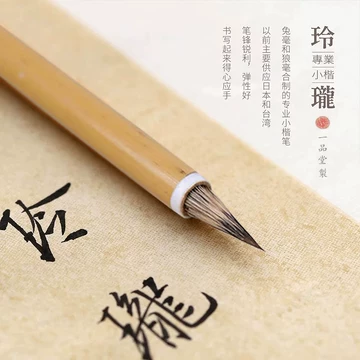 玲瓏
專業小楷
一品堂製
兔毫和狼毫合制的专业小楷笔
以前主要供应日本和台湾
笔锋锐利，弹性好
书写起来得心应手
玲
瓏